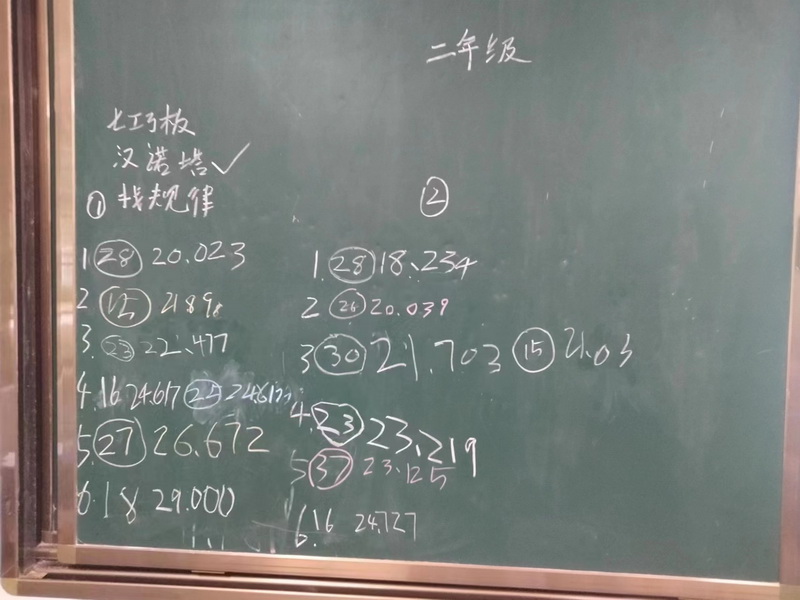 二年级
七巧板
汉诺塔✓
① 找规律
1 28 20.023
2 15 21.898
3. 23 22.477
4. 16 24.617 25 24.617
5. 27 26.672
6. 18 29.000
②
1. 28 18.234
2 24 20.039
3 30 21.703 15 21.03
4. 23 23.219
5 37 23.125
6. 16 24.727